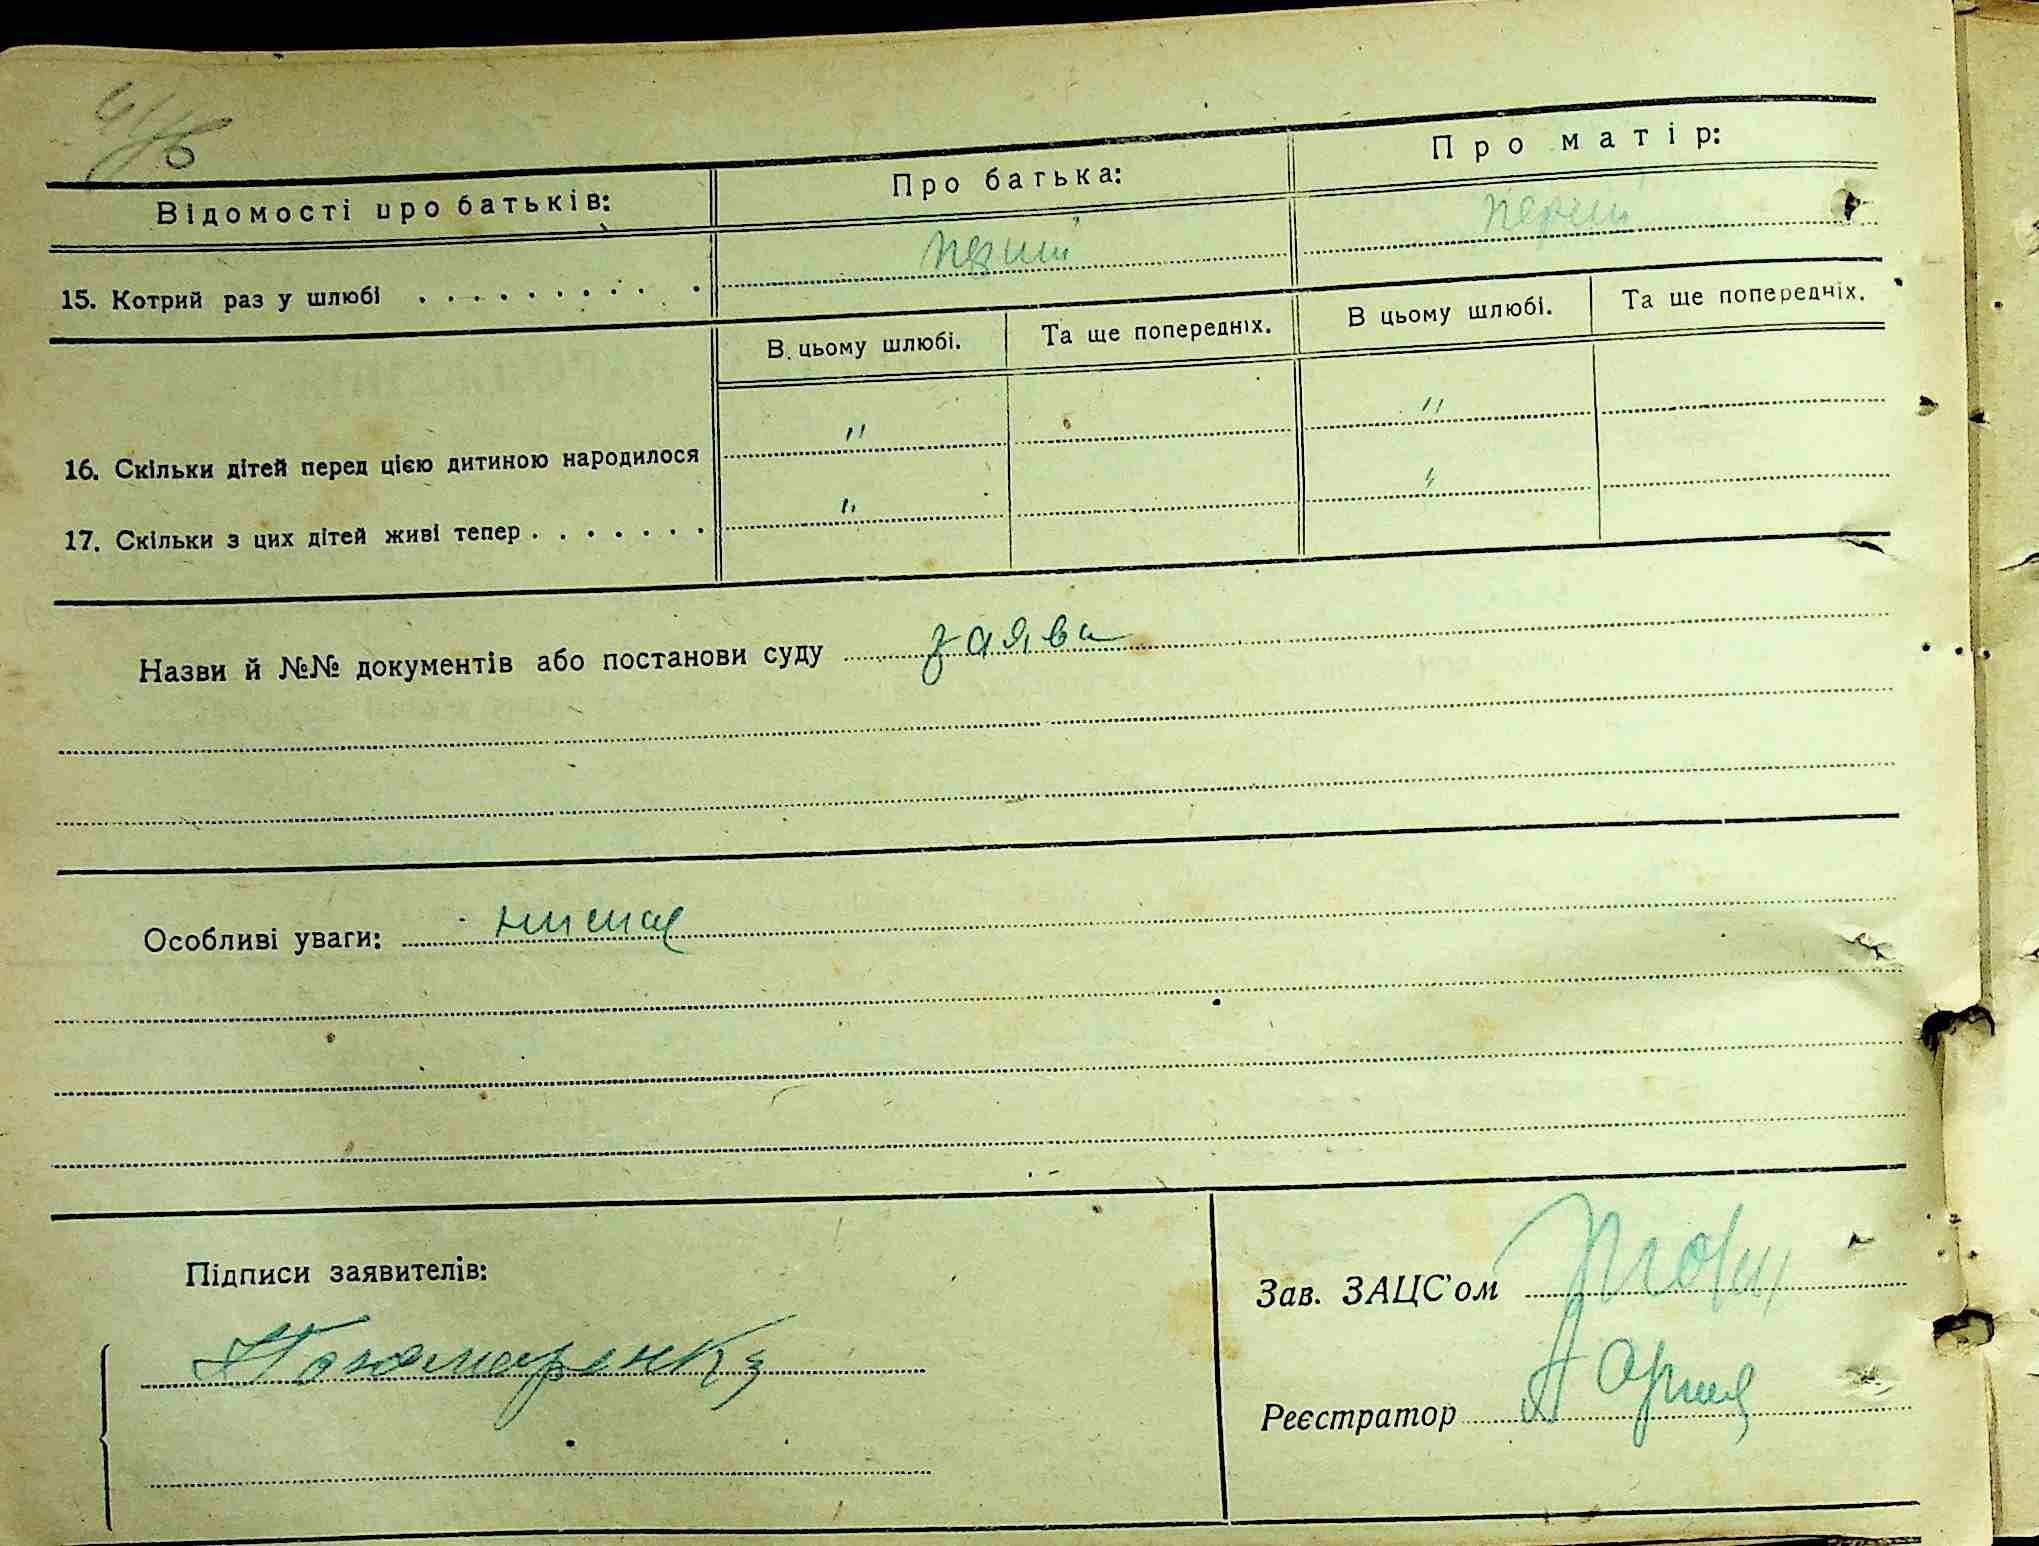 Відомості про батьків: Про батька: Про матір:
15. Котрий раз у шлюбі . . . . . . . . . . перший перший
В цьому шлюбі. Та ще попередніх. В цьому шлюбі. Та ще попередніх.
16. Скільки дітей перед цією дитиною народилося " "
17. Скільки з цих дітей живі тепер . . . . . . . " "
Назви й №№ документів або постанови суду заява
Особливі уваги: немає
Підписи заявителів:
Зав. ЗАЦС'ом
Пономаренко
Реєстратор